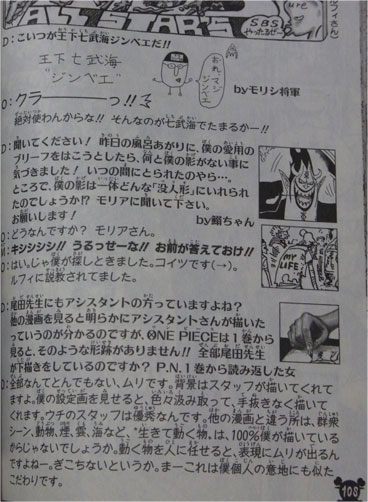 ALL STAR'S
SBS
やったるぜー
D：こいつが王下七武海ジンベエだ!!
王下七武海
“ジンベエ”
おれ、マジ
ジンベエ
byモリシ将軍
O：クラーーーーっ!!
絶対使わんからな!! そんなのが七武海でたまるかー!!
D：聞いてください! 昨日の風呂あがりに、僕の愛用の
ブリーフをはこうとしたら、何と僕の影がない事に
気づきました! いつの間にとられたのやら…。
ところで、僕の影は一体どんな『没人形』にいれられ
たのでしょうか!? モリアに聞いて下さい。
お願いします!
O：どうなんですか? モリアさん。
M：キシシシシ!! うるっせーな!! お前が答えておけ!!
O：はい。じゃ僕が探しときました。コイツです(→)。
ルフィに説教されてました。
MY
LIFE
D：尾田先生にもアシスタントの方っていますよね?
他の漫画を見ると明らかにアシスタントさんが描いた
っていうのが分かるのですが、ONE PIECEは1巻から
見ると、そのような形跡がありません!! 全部尾田先生
が下描きをしているのですか? P.N.1巻から読み返した女
O：全部なんてとんでもない、ムリです。背景はスタッフが描いてくれて
ますよ。僕の設定画を見せると、色々汲み取って、手抜きなく描いて
くれます。ウチのスタッフは優秀なんです。他の漫画と違う所は、群衆
シーン、動物、煙、雲、海など、“生きて動く物”は、100%僕が描いている
からじゃないでしょうか。動く物を人に任せると、表現にムリが出るん
ですよねー。ぎこちないというか。まーこれは僕個人の意地にも似た
こだわりです。
108